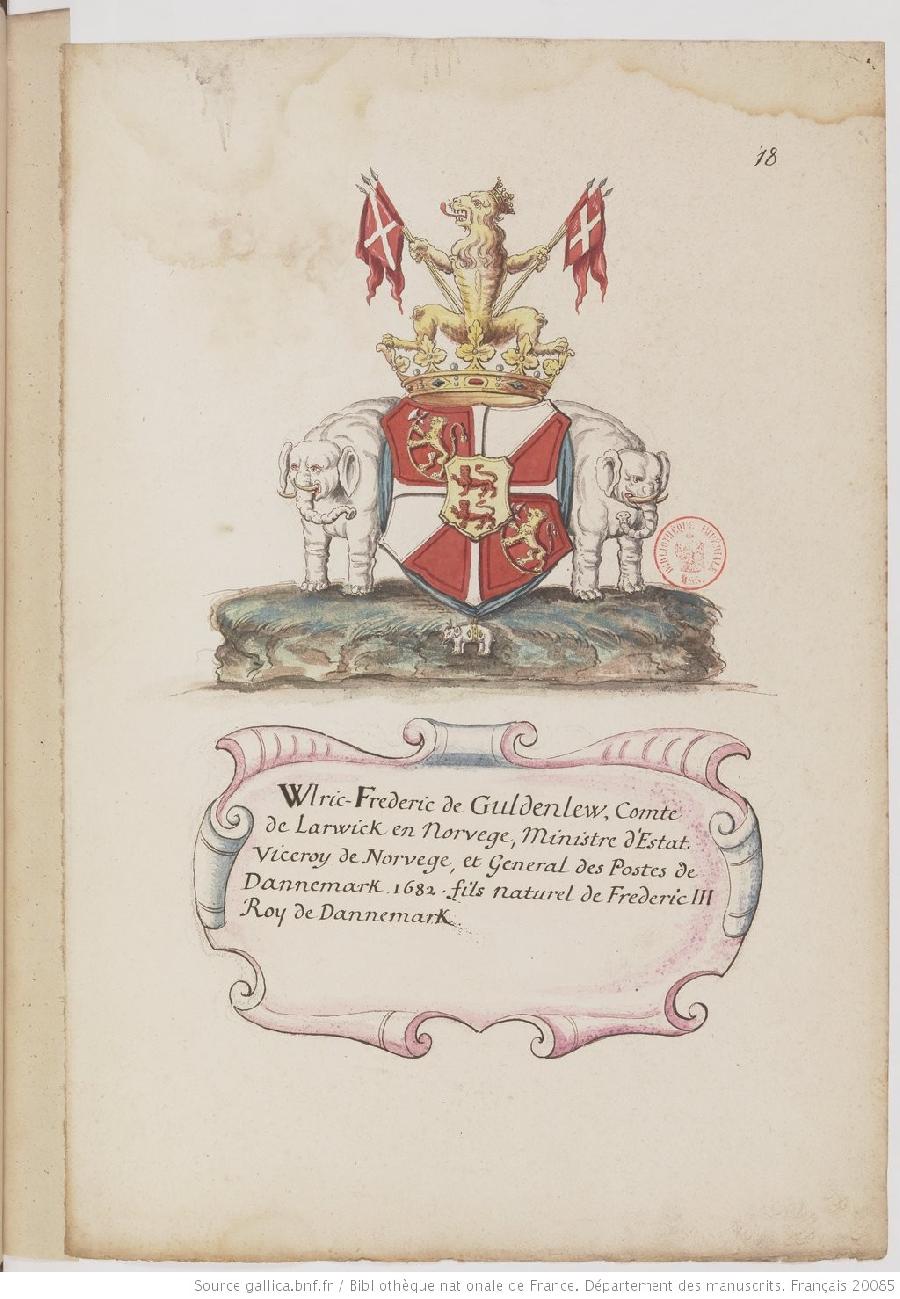 18
BIBLIOTHÈQUE IMPÉRIALE
MSS.
Wlric-Frederic de Guldenlew, Comte
de Larwick en Norvege, Ministre d'Estat.
Viceroy de Norvege, et General des Postes de
Dannemark. 1682. fils naturel de Frederic III
Roy de Dannemark.
Source gallica.bnf.fr / Bibliothèque nationale de France. Département des manuscrits. Français 20065